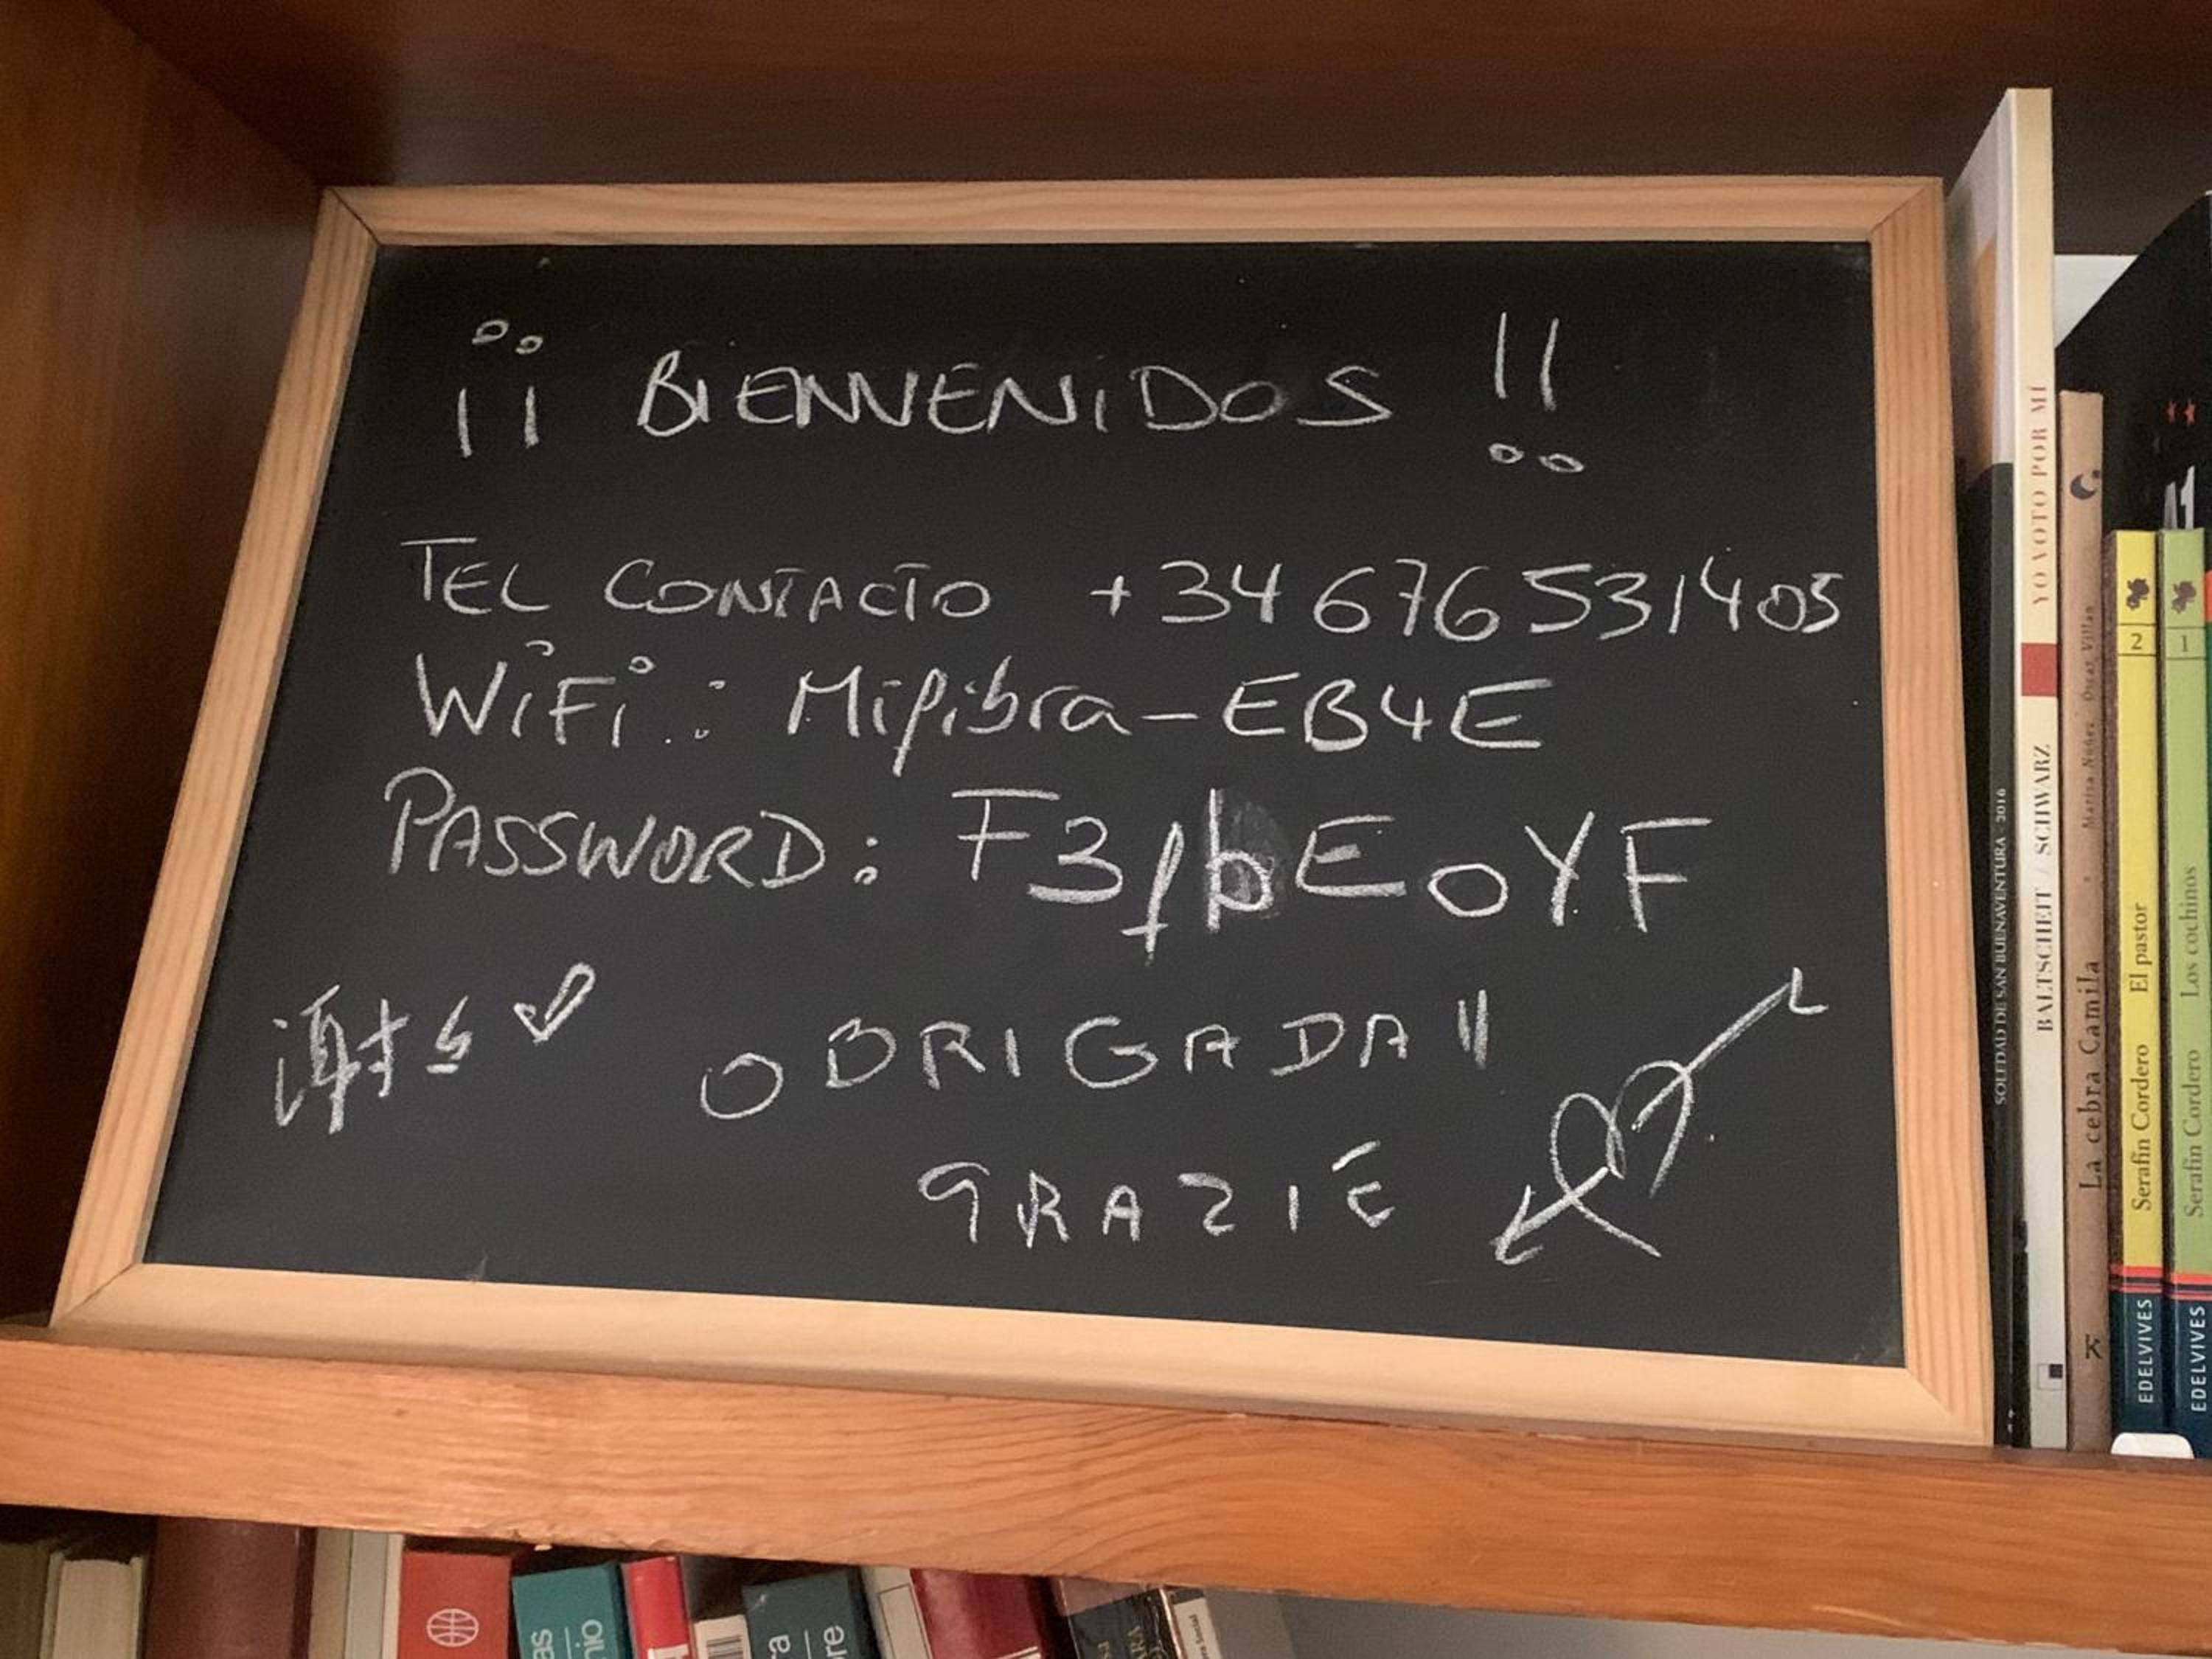 ¡¡ BIENVENIDOS !!
TEL CONTACTO +34 676531405
WiFi: Mipibra-EB4E
PASSWORD: F3fbEoYF
谢谢
OBRIGADA!!
GRAZIE
YO VOTO POR MÍ
BALTSCHEIT / SCHWARZ
SOLEDAD DE SAN BUENAVENTURA - 2016
La cebra Camila
Marisa Núñez · Óscar Villán
2
Serafín Cordero El pastor
EDELVIVES
1
Serafín Cordero Los cochinos
EDELVIVES